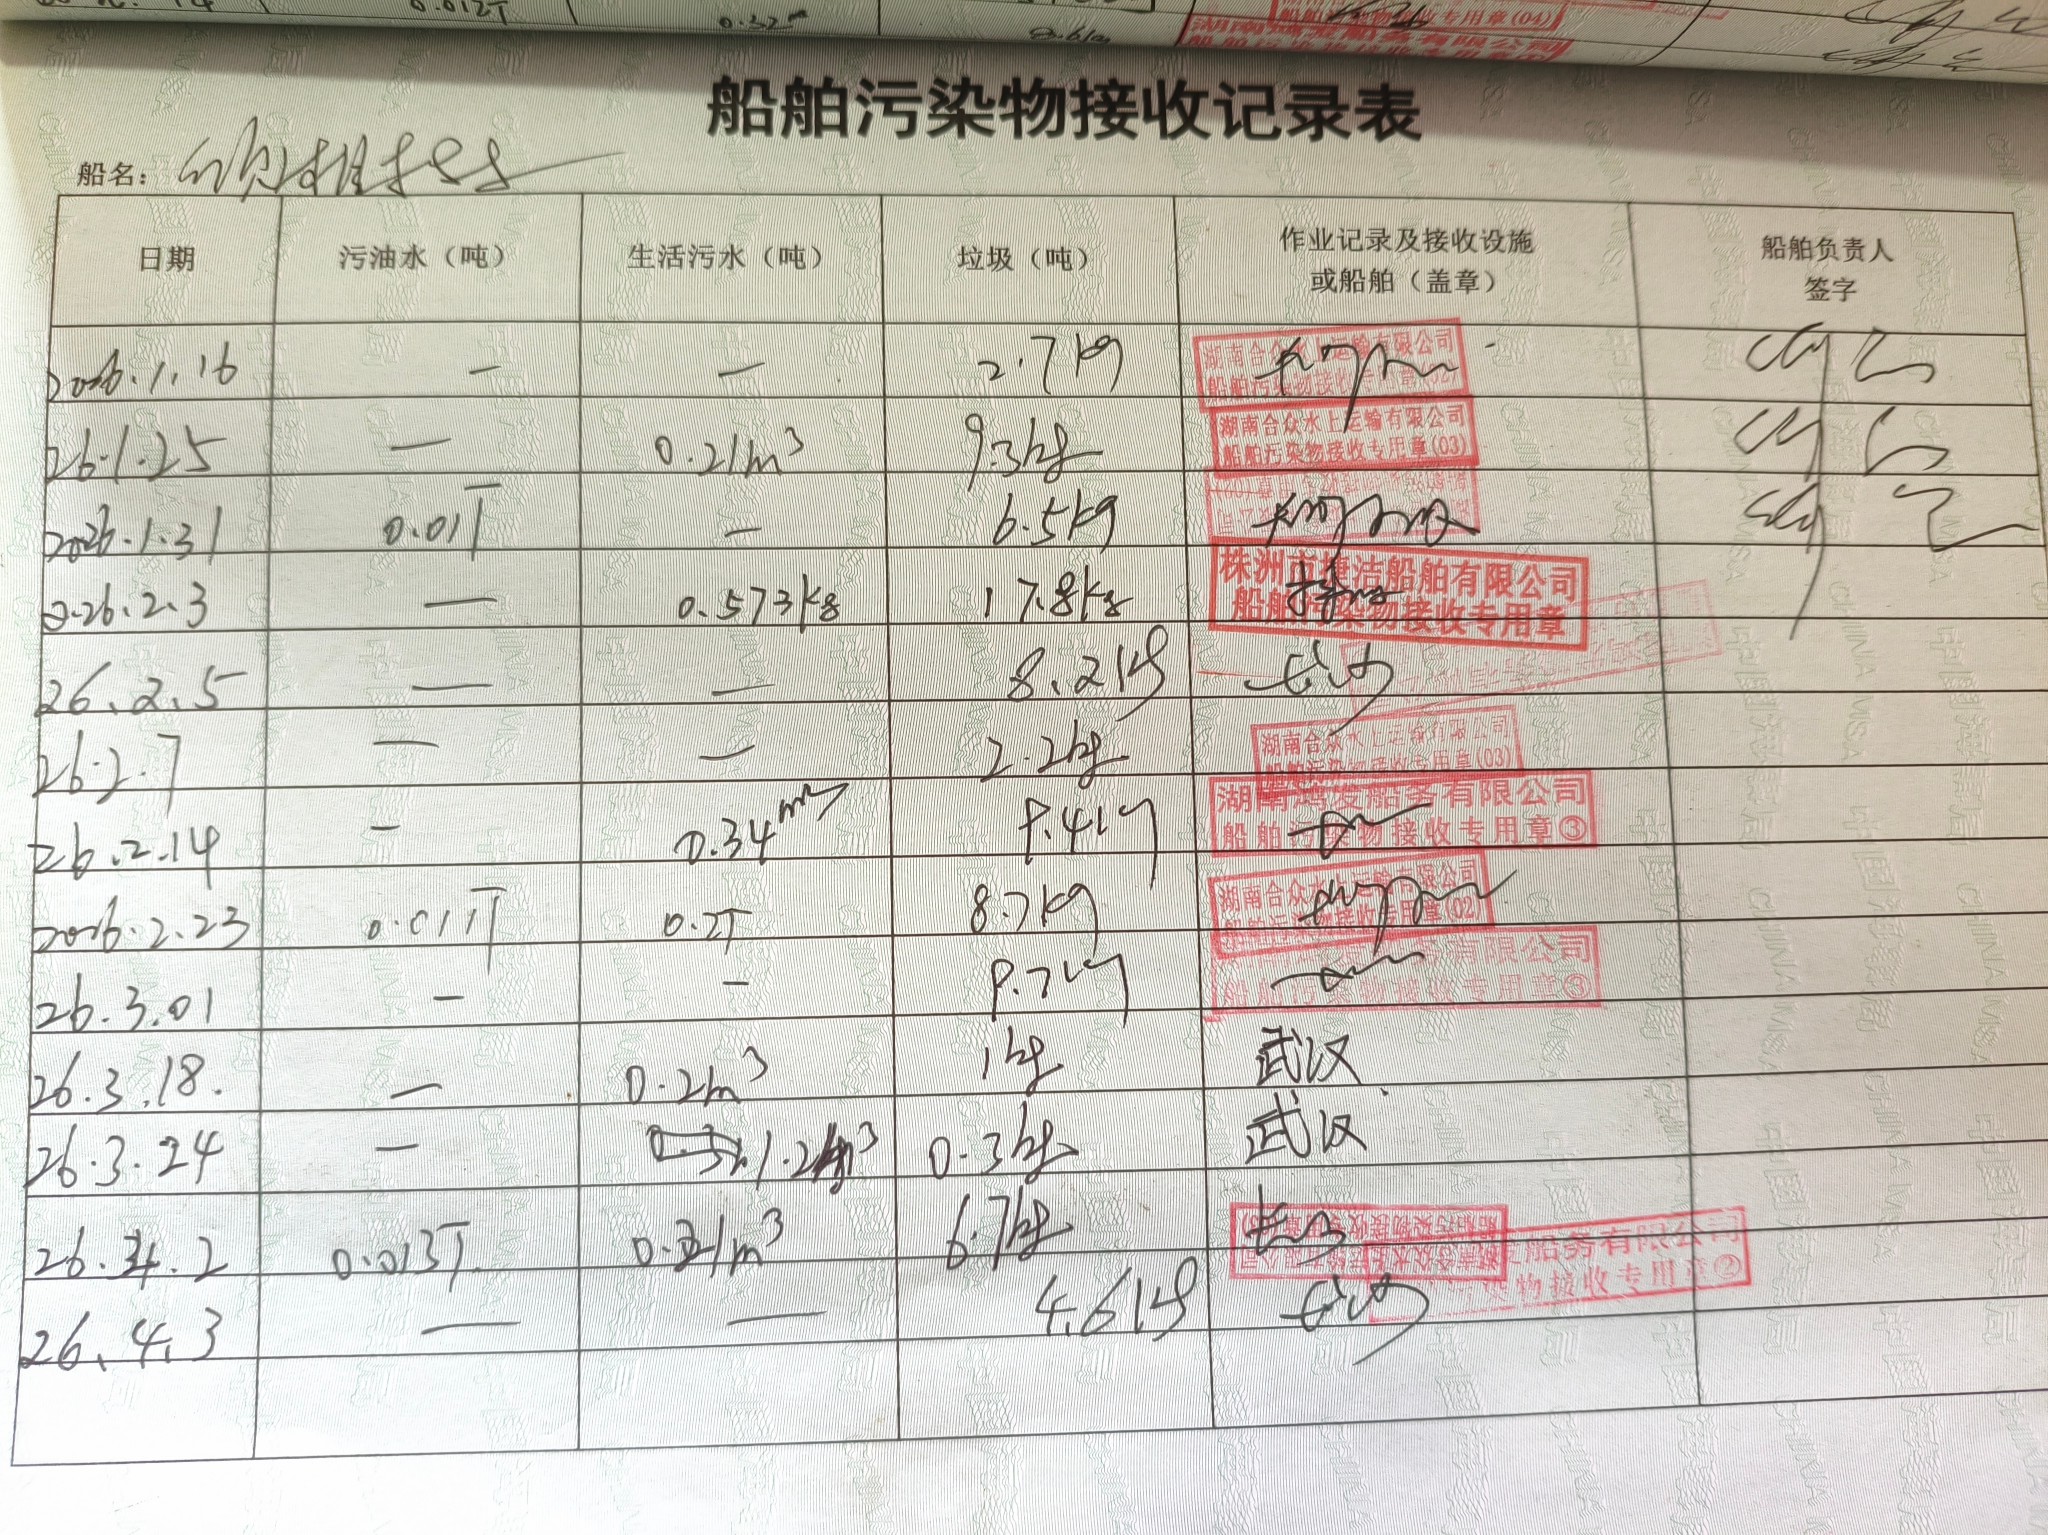 0.012T
船舶污染物接收专用章(04)
船舶污染物接收记录表
船名：
日期 污油水（吨） 生活污水（吨） 垃圾（吨） 作业记录及接收设施或船舶（盖章） 船舶负责人签字
2026.1.16 — — 2.7kg 湖南合众水上运输有限公司
26.1.25 — 0.21m³ 9.3kg 湖南合众水上运输有限公司 船舶污染物接收专用章(03)
2026.1.31 0.01T — 6.5kg
2.26.2.3 — 0.573kg 17.8kg 株洲市捷洁船舶有限公司 船舶污染物接收专用章
26.2.5 — — 8.2kg 长沙
26.2.7 — — 2.2kg 湖南合众水上运输有限公司 船舶污染物接收专用章(03)
26.2.14 — 0.34m³ 8.4kg 湖南鸿发船务有限公司 船舶污染物接收专用章③
2026.2.23 0.011T 0.2T 8.7kg 湖南合众水上运输有限公司 船舶污染物接收专用章(02)
26.3.01 — — 8.7kg 务有限公司 船舶污染物接收专用章③
26.3.18. — 0.21m³ 1kg 武汉
26.3.24 — 0.3kg 武汉
26.4.2 0.013T 6.7kg 船务有限公司 染物接收专用章②
26.4.3 — — 4.6kg 长沙